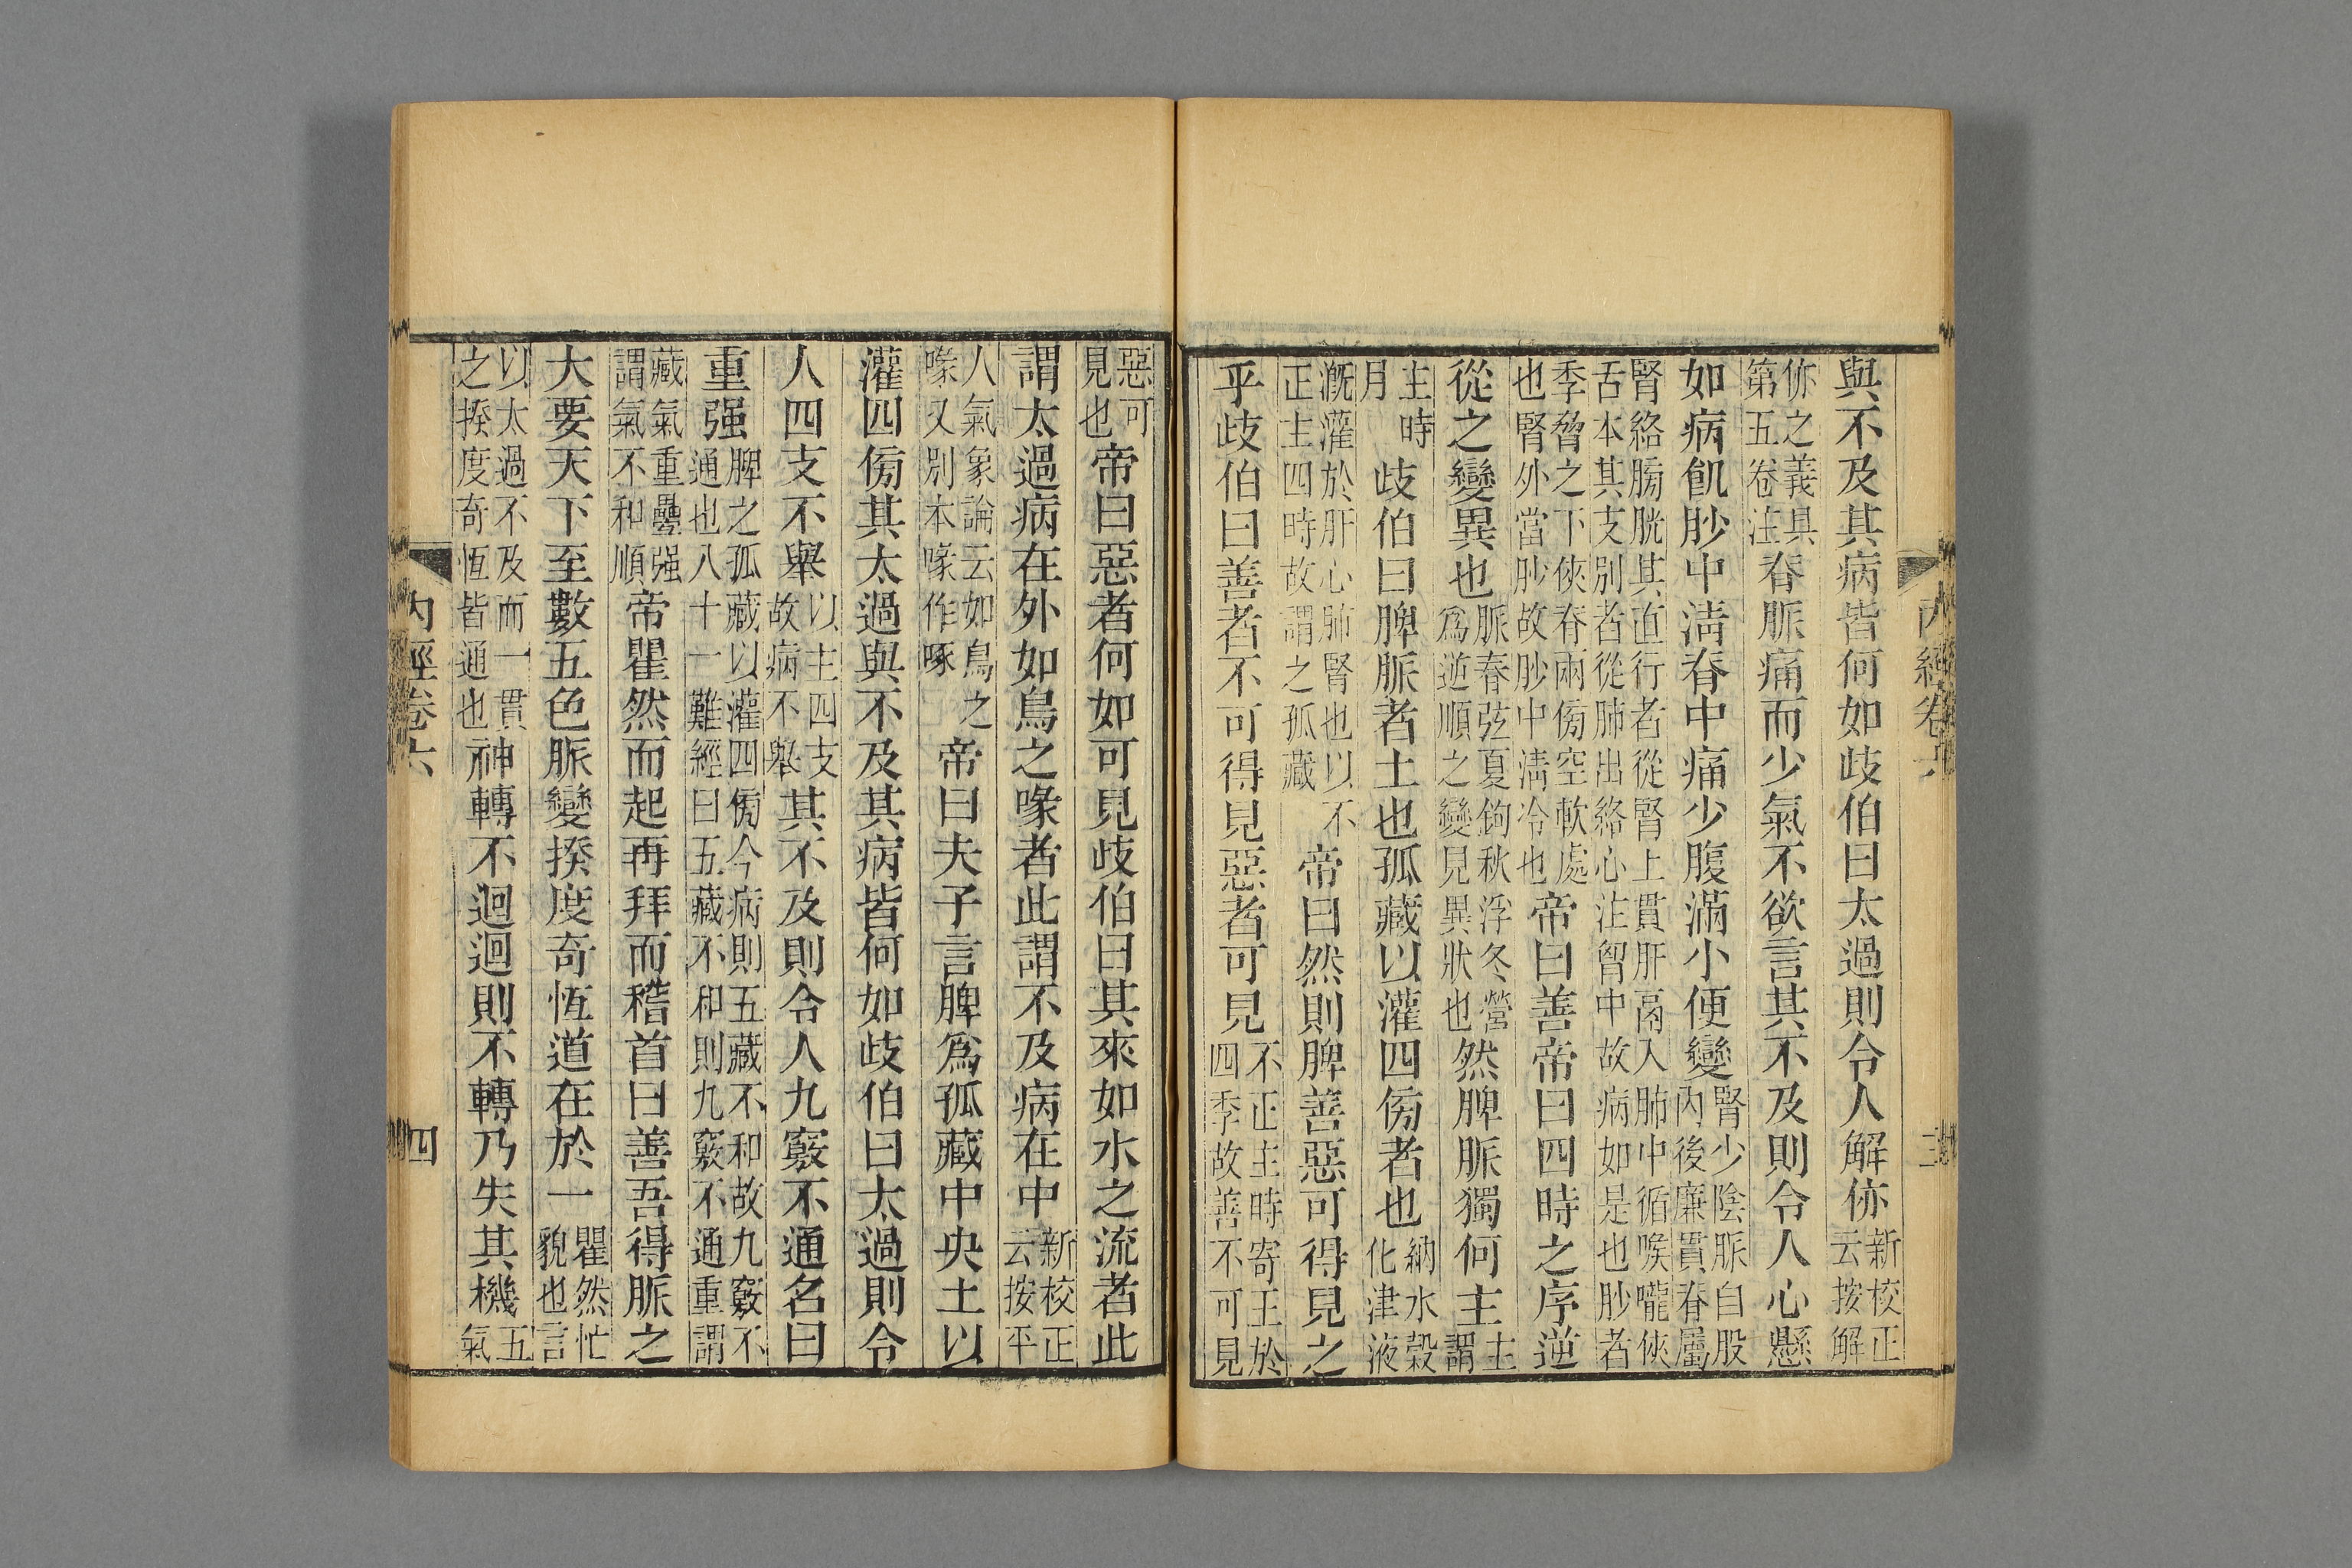 內經卷六 三
與不及其病皆何如歧伯曰太過則令人解㑊新校正云按解
㑊之義具第五卷注脊脈痛而少氣不欲言其不及則令人心懸
如病飢䏚中淸脊中痛少腹滿小便變腎少陰脈自股內後廉貫脊屬
腎絡膀胱其直行者從腎上貫肝鬲入肺中循喉嚨俠舌本其支別者從肺出絡心注胷中故病如是也䏚者
季脅之下俠脊兩傍空軟處也腎外當䏚故䏚中淸冷也帝曰善帝曰四時之序逆
從之變異也脈春弦夏鉤秋浮冬營爲逆順之變見異狀也然脾脈獨何主主謂
主時月歧伯曰脾脈者土也孤藏以灌四傍者也納水穀化津液
漑灌於肝心肺腎也以不正主四時故謂之孤藏帝曰然則脾善惡可得見之
乎歧伯曰善者不可得見惡者可見不正主時寄王於四季故善不可見
惡可見也帝曰惡者何如可見歧伯曰其來如水之流者此
謂太過病在外如鳥之喙者此謂不及病在中新校正云按平
人氣象論云如鳥之喙又別本喙作啄帝曰夫子言脾爲孤藏中央土以
灌四傍其太過與不及其病皆何如歧伯曰太過則令
人四支不舉以主四支故病不舉其不及則令人九竅不通名曰
重强脾之孤藏以灌四傍今病則五藏不和故九竅不通也八十一難經曰五藏不和則九竅不通重謂
藏氣重疊强謂氣不和順帝瞿然而起再拜而稽首曰善吾得脈之
大要天下至數五色脈變揆度奇恆道在於一瞿然忙貌也言
以太過不及而一貫之揆度奇恆皆通也神轉不迴迴則不轉乃失其機五氣
內經卷六 四